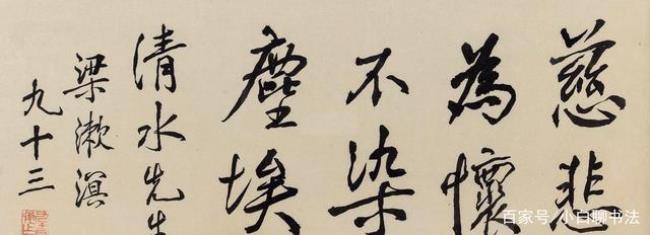 慈悲
為懷
不染
塵埃
清水先生
梁漱溟
九十三
百家号/小白聊书法